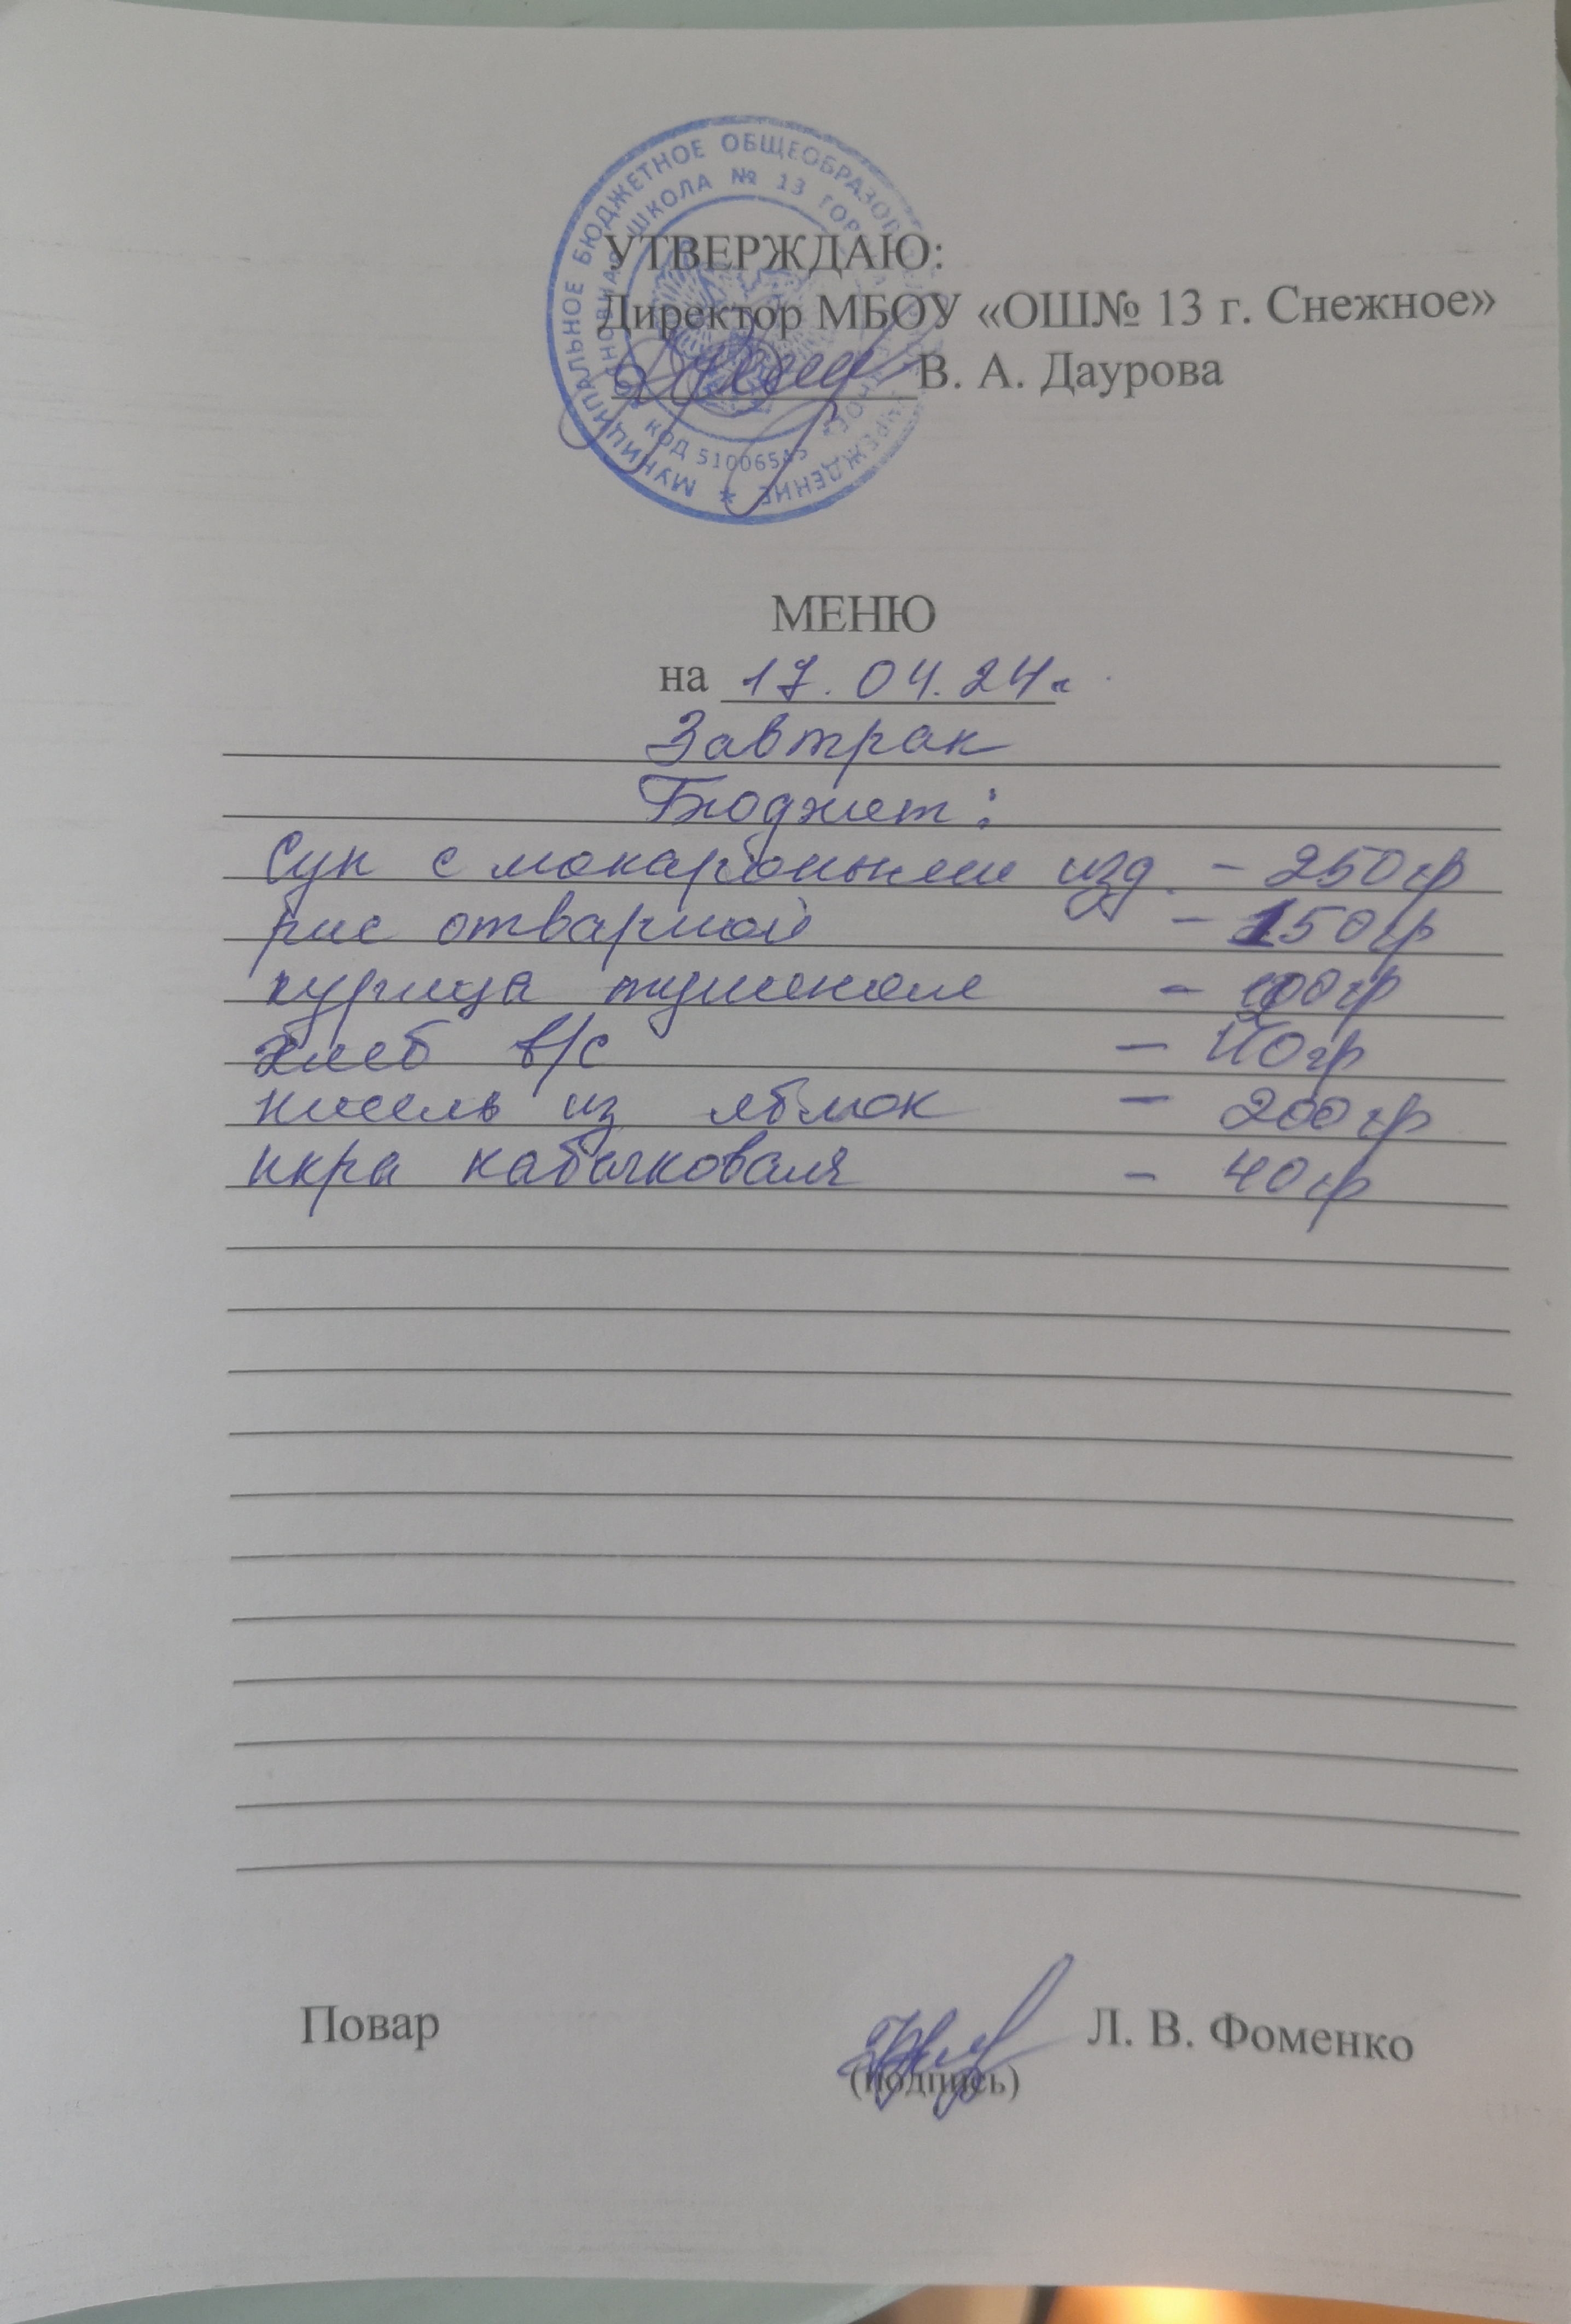 МУНИЦИПАЛЬНОЕ БЮДЖЕТНОЕ ОБЩЕОБРАЗОВ УЧРЕЖДЕНИЕ *
ОСНОВНАЯ ШКОЛА № 13 ГОР
КОД 51006545
УТВЕРЖДАЮ:
Директор МБОУ «ОШ№ 13 г. Снежное»
В. А. Даурова
МЕНЮ
на 17.04.24г
Завтрак
Бюджет:
Суп с макаронными изд. - 250гр
рис отварной - 150гр
курица тушеная - 100гр
хлеб в/с - 40гр
кисель из яблок - 200гр
икра кабачковая - 40гр
Повар Л. В. Фоменко
(подпись)